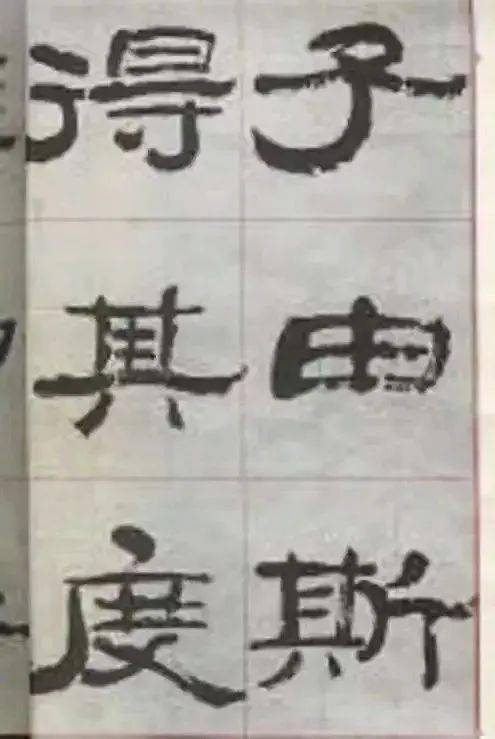 子由斯
得其度